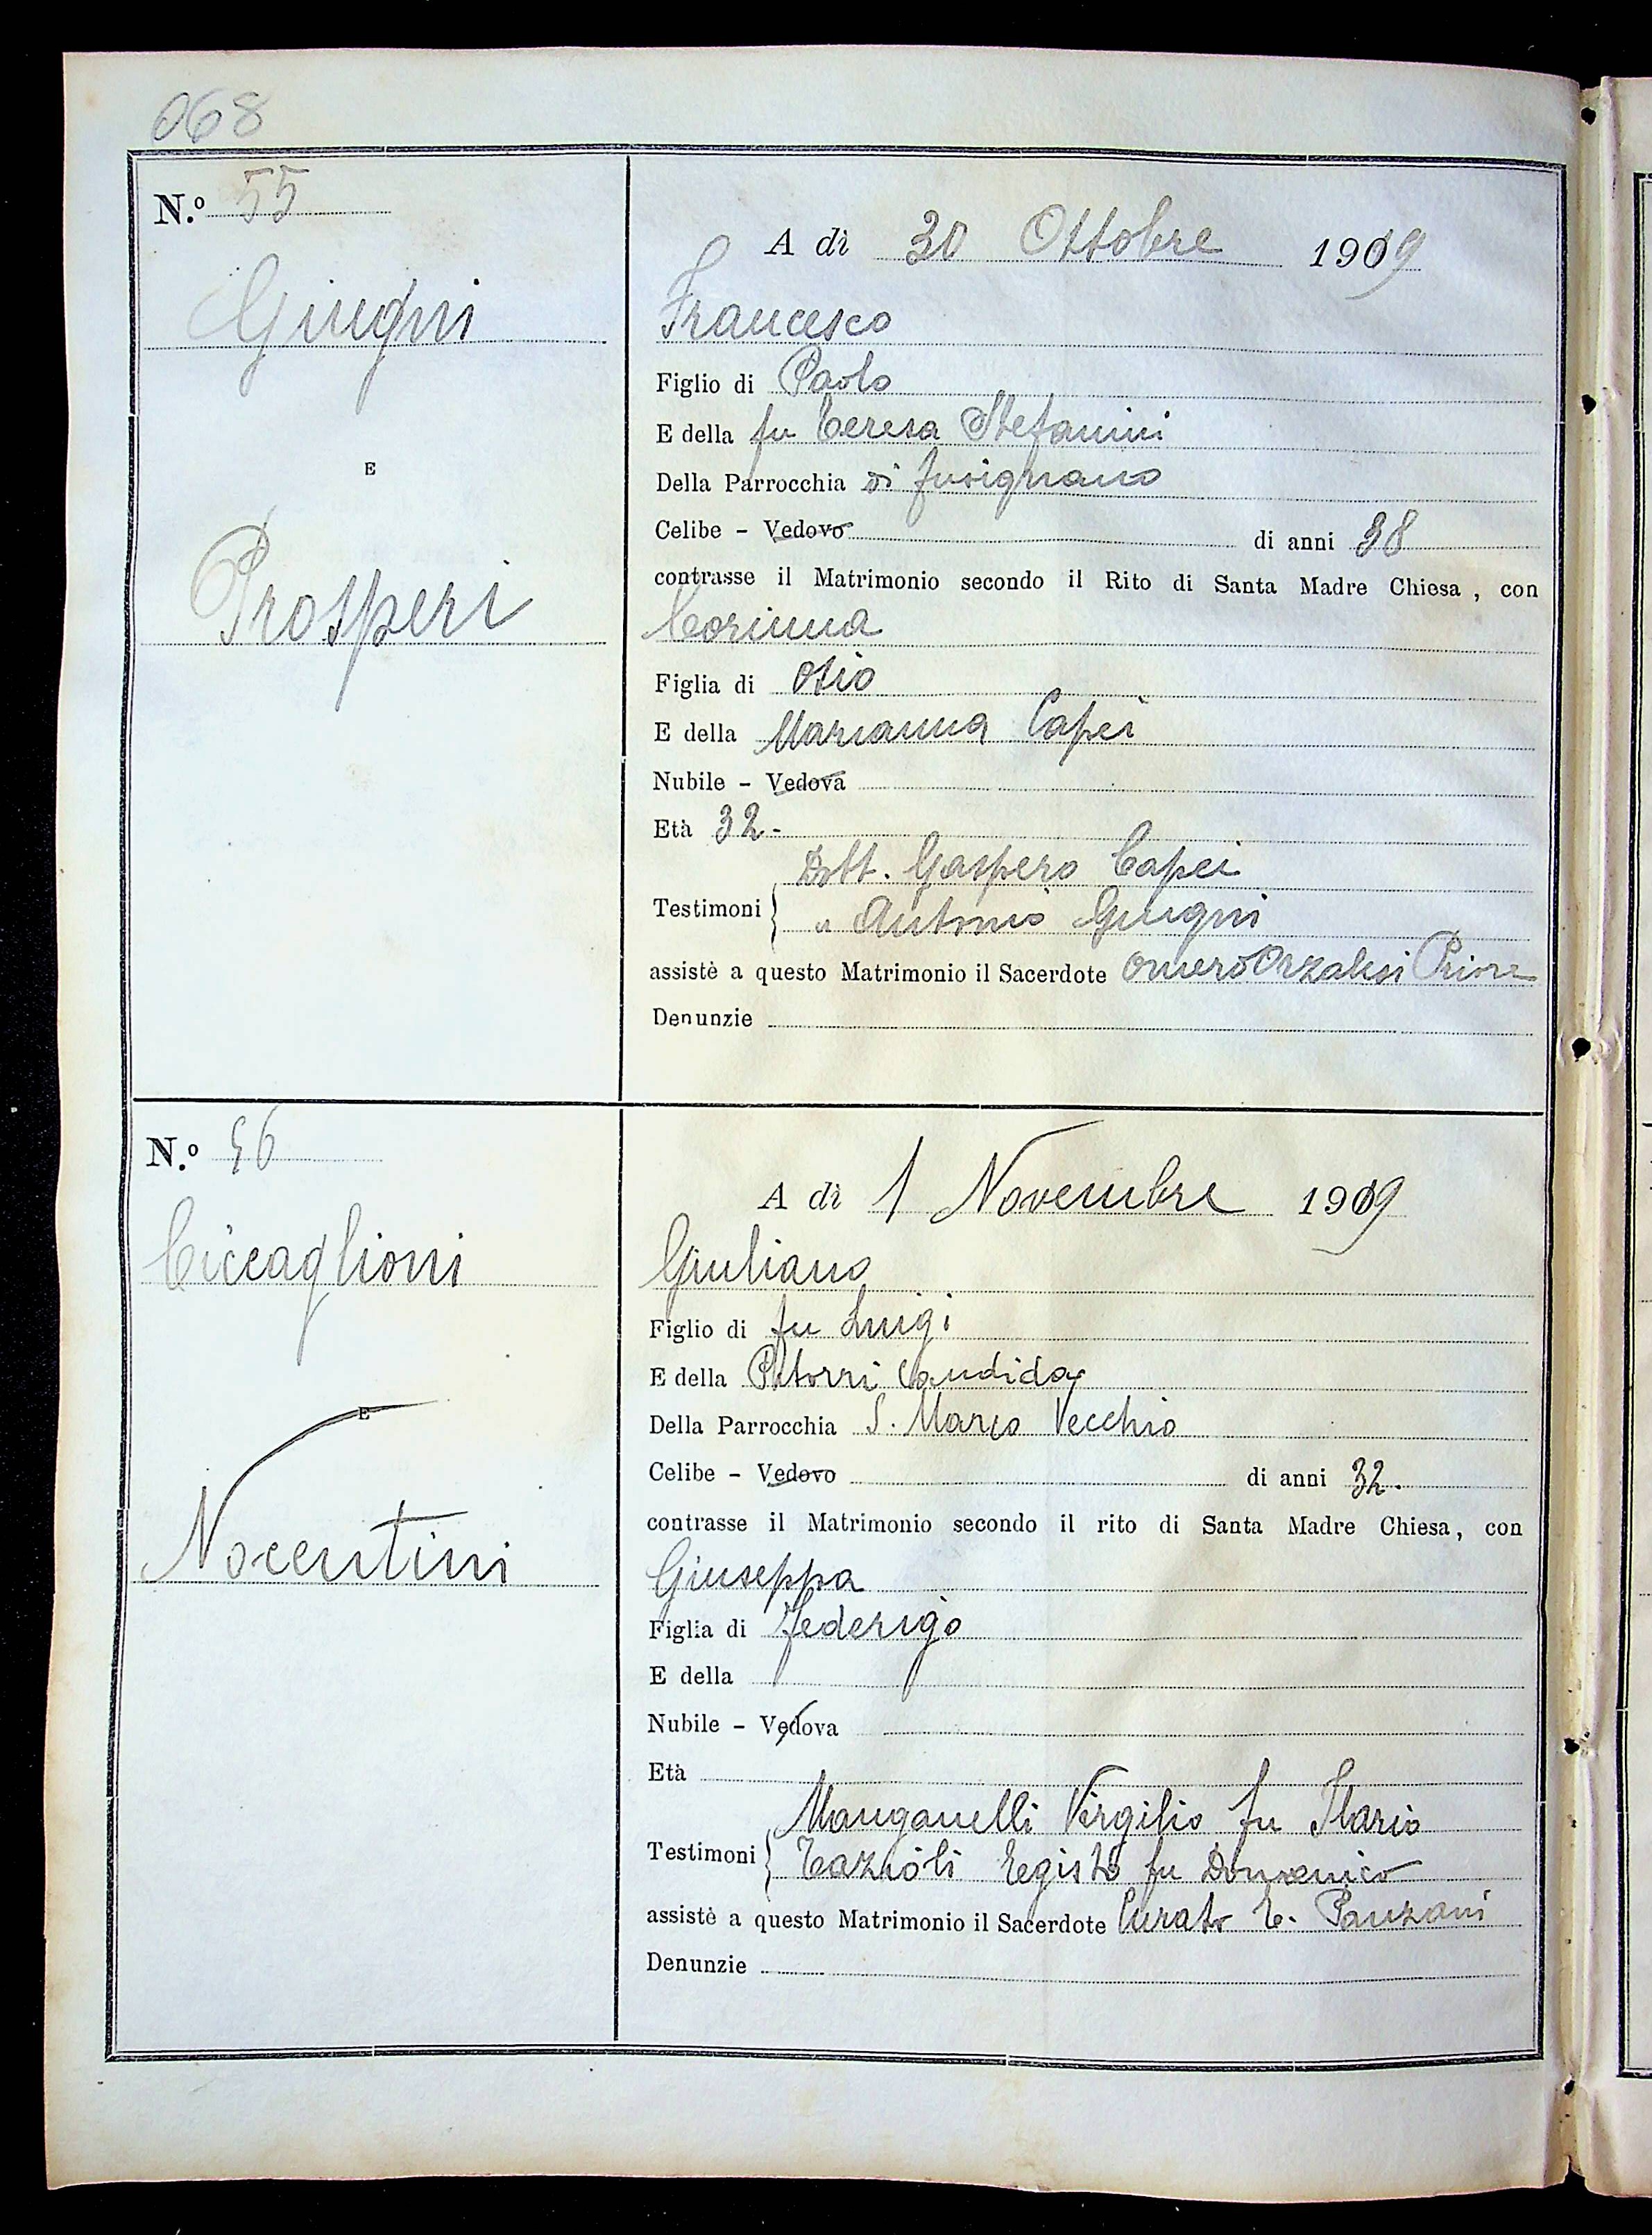 068
N.º 55
Giugni
E
Prosperi
A dì 30 Ottobre 1909
Francesco
Figlio di Paolo
E della fu Teresa Stefanini
Della Parrocchia di fusignano
Celibe - Vedovo di anni 38
contrasse il Matrimonio secondo il Rito di Santa Madre Chiesa, con
Corinna
Figlia di
E della Marianna Capei
Nubile - Vedova
Età 32 -
Dott. Gaspero Capei
Testimoni
" Antonio Giugni
assistè a questo Matrimonio il Sacerdote Omero Orzalesi Priore
Denunzie
N.º 56
Ciccaglioni
E
Nocentini
A dì 1 Novembre 1909
Giuliano
Figlio di fu Luigi
E della Candida
Della Parrocchia S. Marco Vecchio
Celibe - Vedovo di anni 32.
contrasse il Matrimonio secondo il rito di Santa Madre Chiesa, con
Giuseppa
Figlia di Federigo
E della
Nubile - Vedova
Età
Manganelli Virgilio fu Ilario
Testimoni
Tazzioli Egisto fu Domenico
assistè a questo Matrimonio il Sacerdote Curato E. Panzani
Denunzie